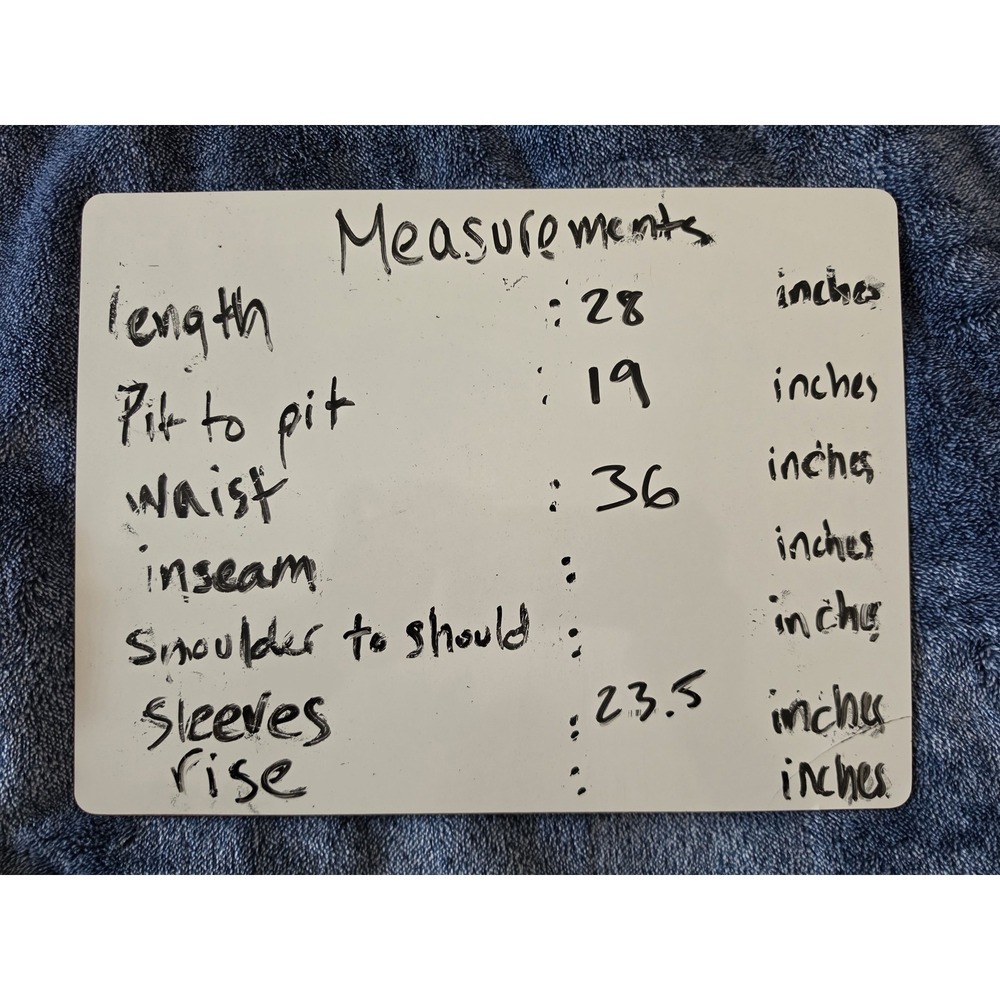 Measurements
length : 28 inches
Pit to pit : 19 inches
waist : 36 inches
inseam : inches
Shoulder to should : inches
Sleeves : 23.5 inches
rise : inches